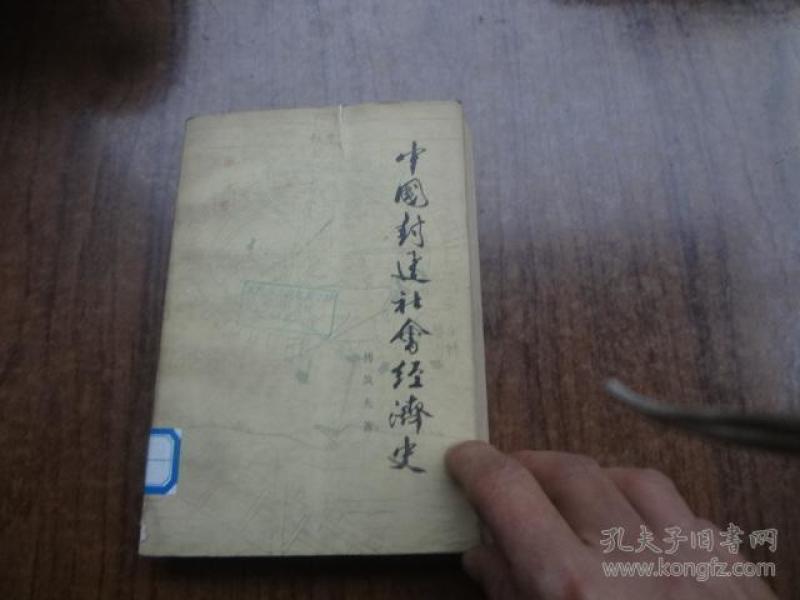 中國封建社會經濟史
傅筑夫著
孔夫子旧書网
www.kongfz.com